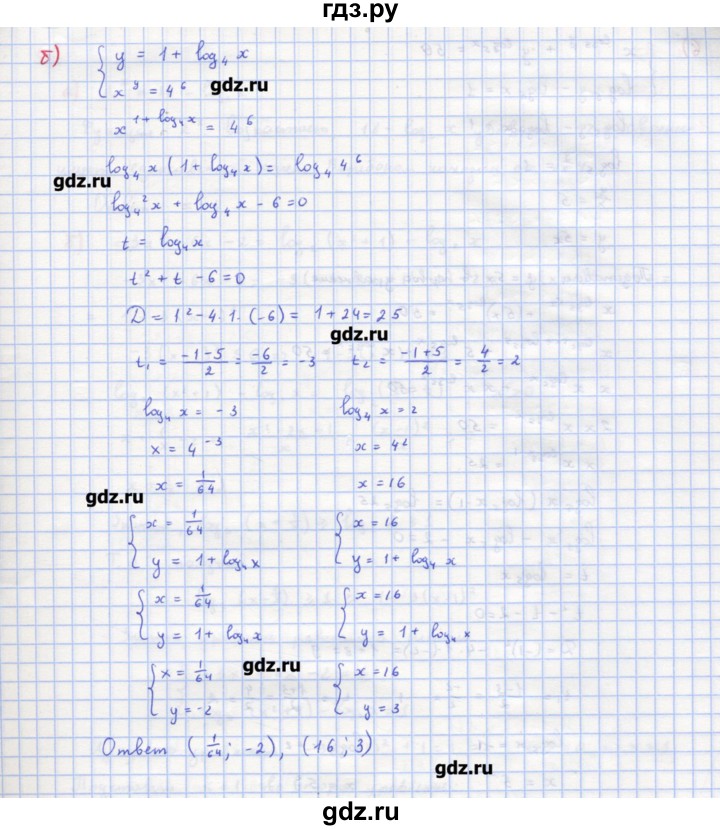 гдз.ру
б) { y = 1 + log₄ x
x^y = 4⁶
gdz.ru
x^(1 + log₄ x) = 4⁶
log₄ x (1 + log₄ x) = log₄ 4⁶
gdz.ru
log₄² x + log₄ x - 6 = 0
t = log₄ x
t² + t - 6 = 0
D = 1² - 4 · 1 · (-6) = 1 + 24 = 25
gdz.ru
t₁ = (-1-5)/2 = -6/2 = -3 t₂ = (-1+5)/2 = 4/2 = 2
log₄ x = -3 log₄ x = 2
x = 4⁻³ x = 4²
x = 1/64 x = 16
gdz.ru
{ x = 1/64 { x = 16
y = 1 + log₄ x y = 1 + log₄ x
{ x = 1/64 { x = 16
y = 1 + log₄ x y = 1 + log₄ x
gdz.ru
{ x = 1/64 { x = 16
y = -2 y = 3
Ответ (1/64; -2), (16; 3)
gdz.ru
gdz.ru